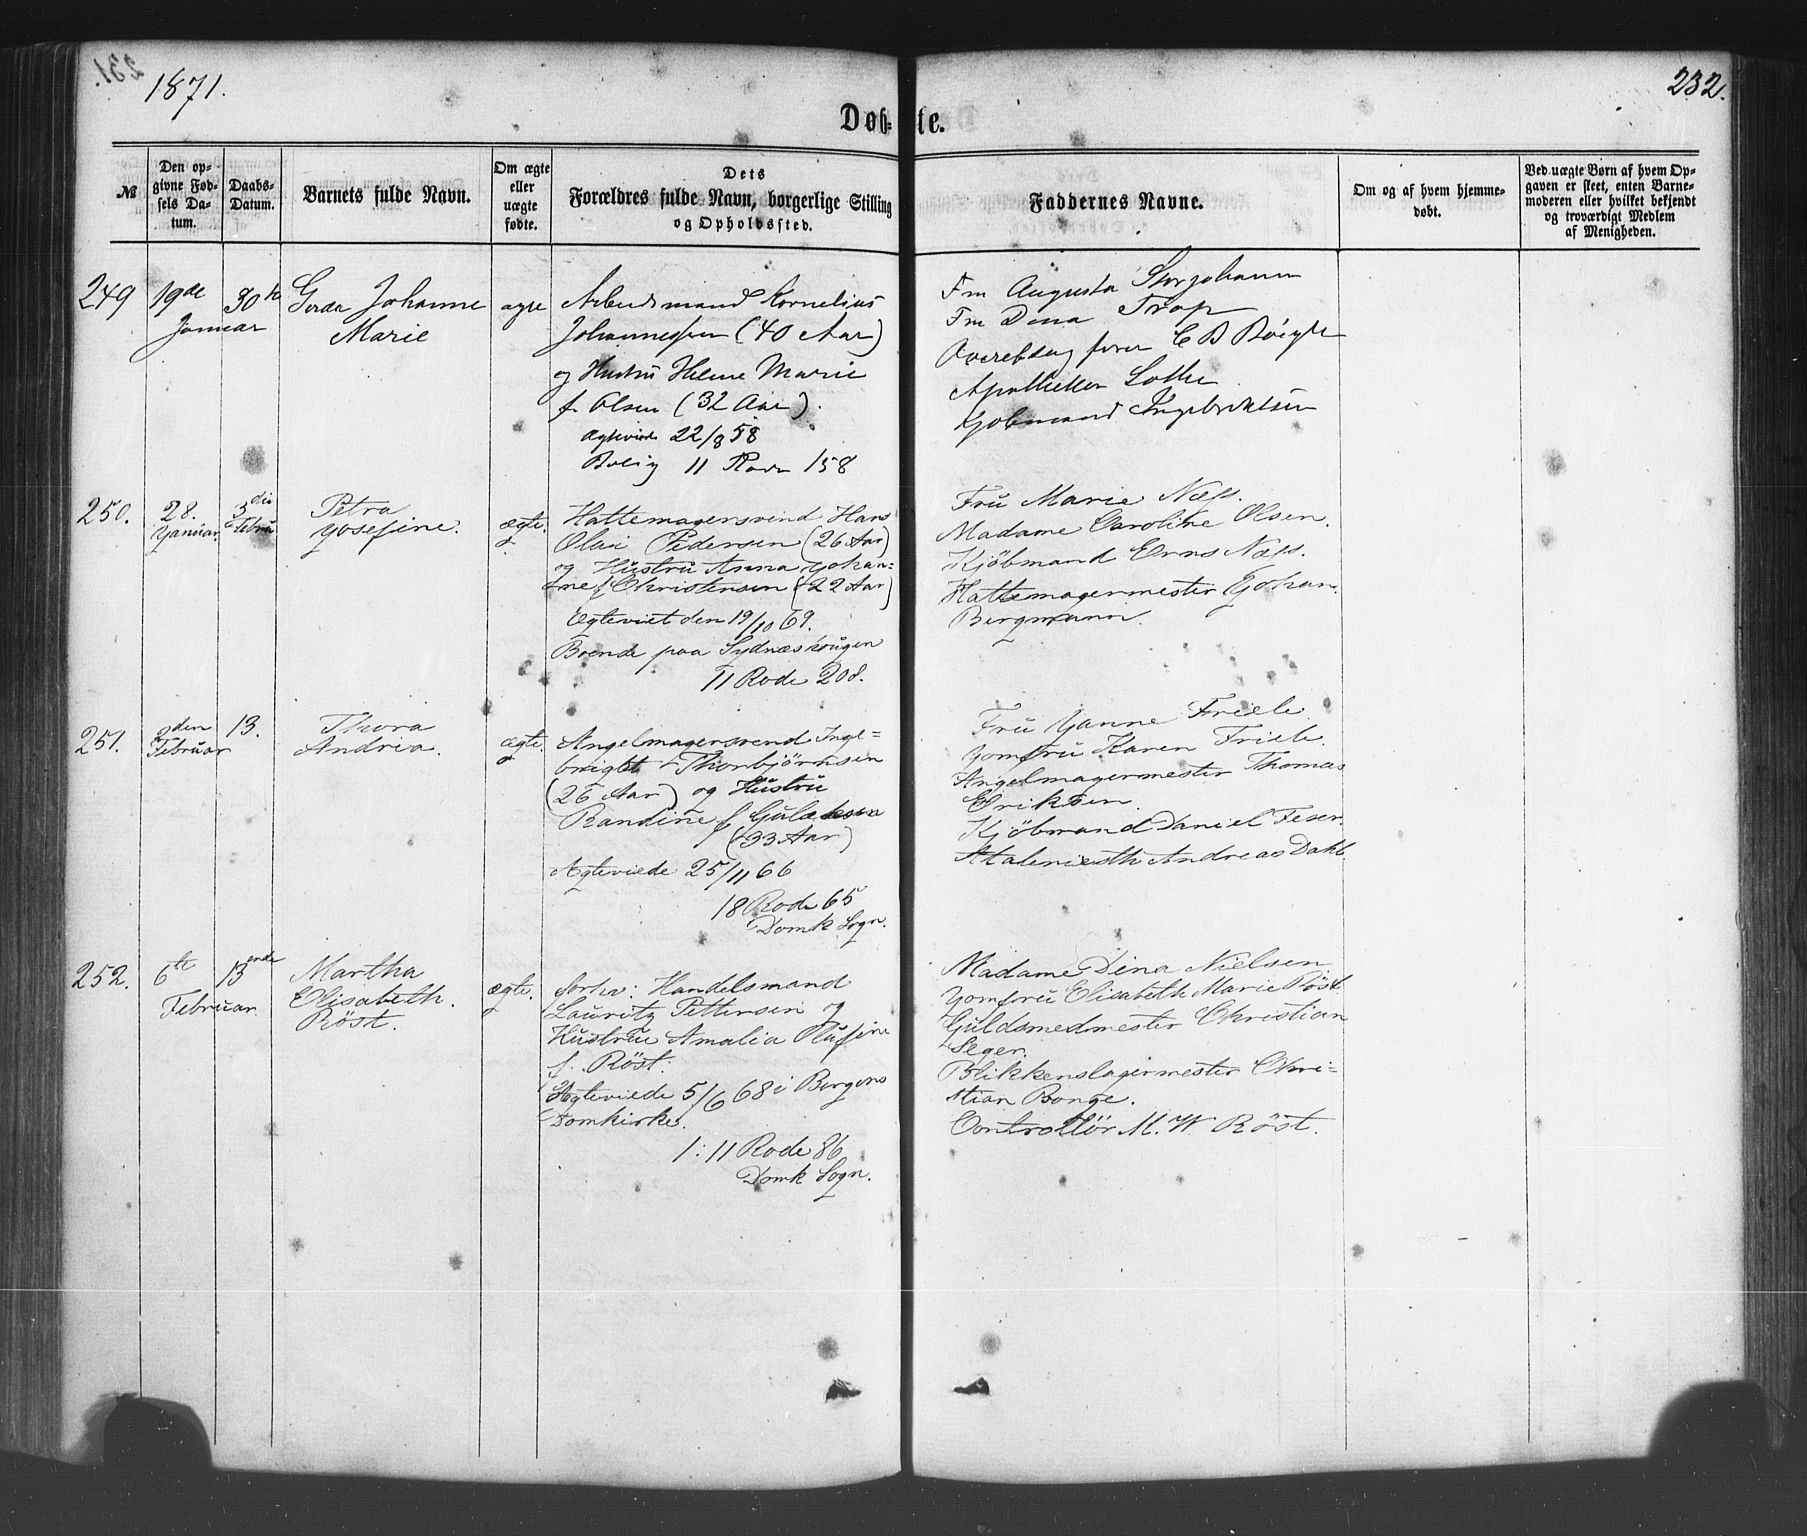 231.
1871.
232.
Døb-
te.
№
Den op-
givne Fød-
sels Da-
tum.
Daabs-
Datum.
Barnets fulde Navn.
Om ægte
eller
uægte
fødte.
Dets
Forældres fulde Navn, borgerlige Stilling
og Opholdssted.
Faddernes Navne.
Om og af hvem hjemme-
døbt.
Ved uægte Børn af hvem Op-
gaven er skeet, enten Barne-
moderen eller hvilket bekjendt
og troværdigt Medlem
af Menigheden.
249
19de
Januar
30te
Gerda Johanne
Marie
ægte
Arbeidsmand Kornelius
Johannessen (40 Aar)
og Hustru Helene Marie
f. Olsen (32 Aar).
Ægteviede 22/8 58
Bolig 11 Rode 158
Fru Augusta Storjohann
Fru Dena Trap
C B
Apotheker Lothe
Kjøbmand Ingebriktsen
250.
28.
Januar.
5die
Febru
Petra
Josefine.
ægte.
Hattemagersvend Hans
Olai Pedersen (26 Aar)
og Hustru Anna Johan=
ne f Christensen (22 Aar)
Ægteviet den 19/10 69.
Boende paa Sydnæskougen
11 Rode 208.
Fru Marie Næss.
Madame Caroline Olsen.
Kjöbmand Erns Næss.
Hattemagermester Johan
Bergmann.
251.
2den
Februar
13.
Thora
Andrea.
ægte.
Angelmagersvend Inge=
brigt Thorbjörnsen
(26 Aar) og Hustru
Randine f Gulaksen
(33 Aar)
Ægteviede 25/11 66
18 Rode 65
Domk Sogn.
Fru Janne Friele
Jomfru Karen Friele.
Angelmagermester Thomas
Eriksen.
Kjöbmand Daniel Feser.
Andreas Dahl.
252.
6te
Februar.
13ende
Martha
Elisabeth.
Röst.
ægte.
forhv: Handelsmand
Lauritz Pettersen og
Hustrue Amalia Olufine
f. Röst.
Ægteviede 5/6 68 i Bergens
Domkirke.
1: 11 Rode 86
Domk Sogn.
Madame Dina Nielsen
Jomfru Elisabeth Marie Röst.
Guldsmedmester Christian
Seger.
Blikkenslagermester Chri=
stian Bonge.
Controllör M. W. Röst.